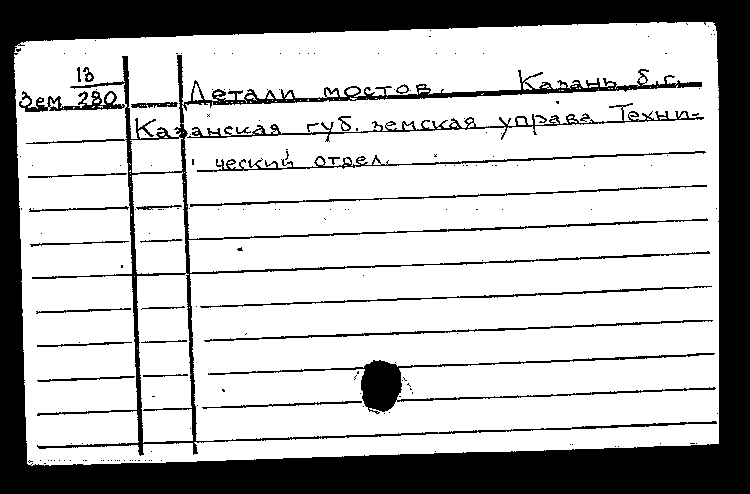 13
Зем 280
Детали мостов. Казань б.г.
Казанская губ. земская управа Техни=
ческий отдел.